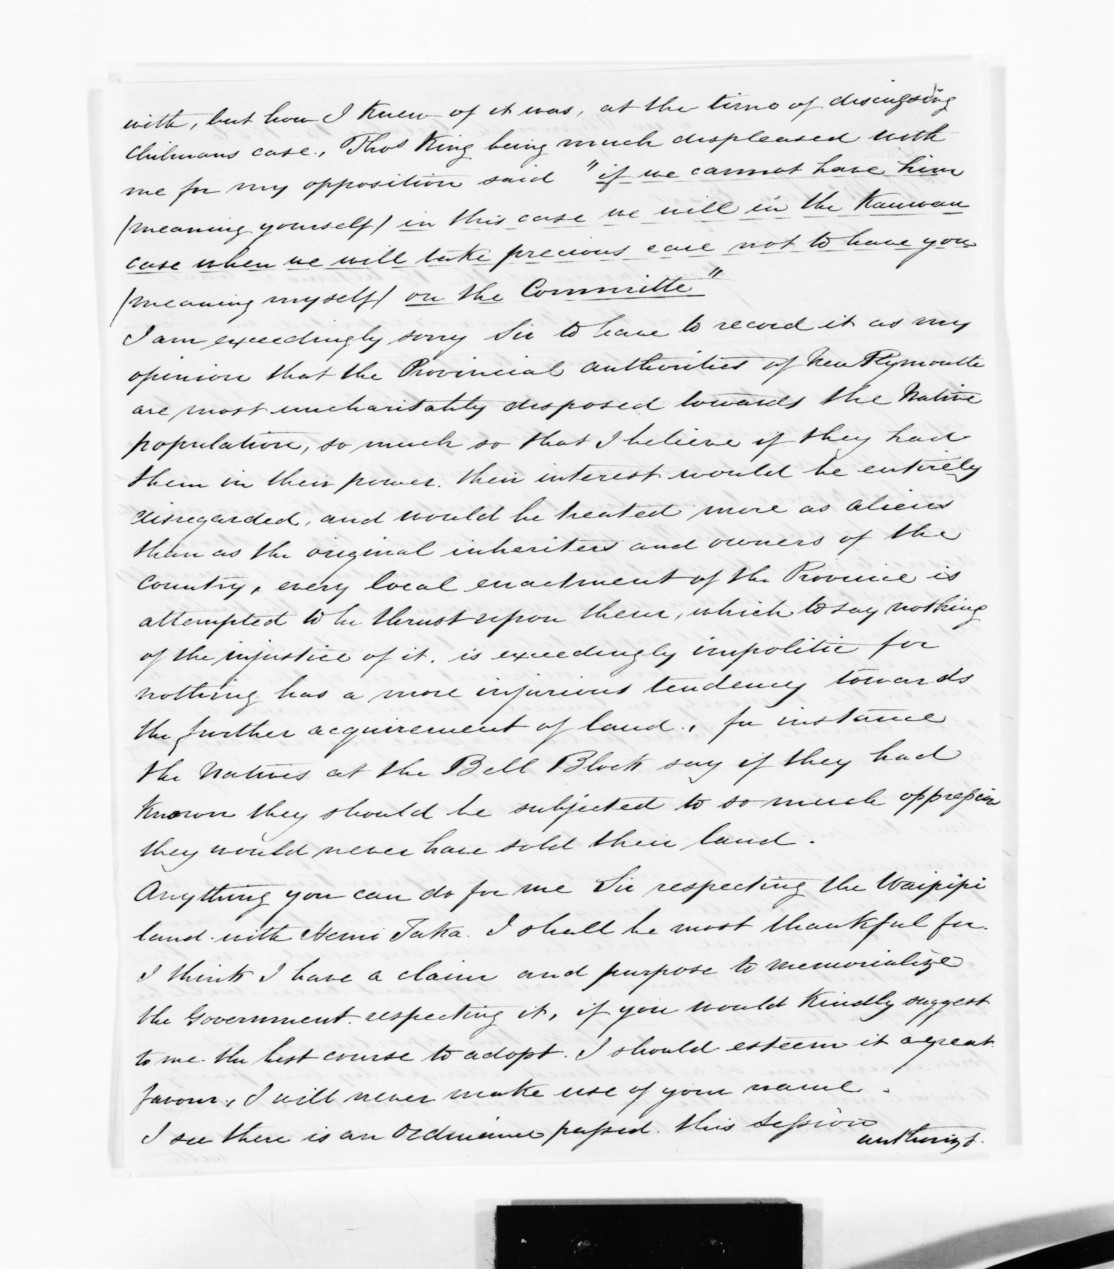 with, but how I knew of it was, at the time of discussing
Chilmans case., Thos King being much displeased with
me for my opposition said "if we cannot have him
(meaning yourself) in this case we will in the Kauwau
case when we will take precious care not to have you
(meaning myself) on the Committe"
I am exceedingly sorry Sir to have to record it as my
opinion that the Provincial authorities of New Plymouth
are most uncharitably disposed towards the Native
population, so much so that I believe if they had
them in their power. their interest would be entirely
disregarded, and would be treated more as aliens
than as the original inheriters and owners of the
Country, every local enactment of the Province is
attempted to be thrust upon them, which to say nothing
of the injustice of it. is exceedingly impolitic for
nothing has a more injurious tendency towards
the further acquirement of land., for instance
the Natives at the Bell Block say if they had
known they should be subjected to so much oppression
they would never have sold their land.
Anything you can do for me Sir respecting the Waipipi
land. with Hemi Taka. I shall be most thankful for.
I think I have a claim and purpose to memorialize
the Government. respecting it, if you would kindly suggest
to me. the best course to adopt. I should esteem it a great
favour, I will never make use of your name.
I see there is an Ordinance passed. this Session
authorizg.